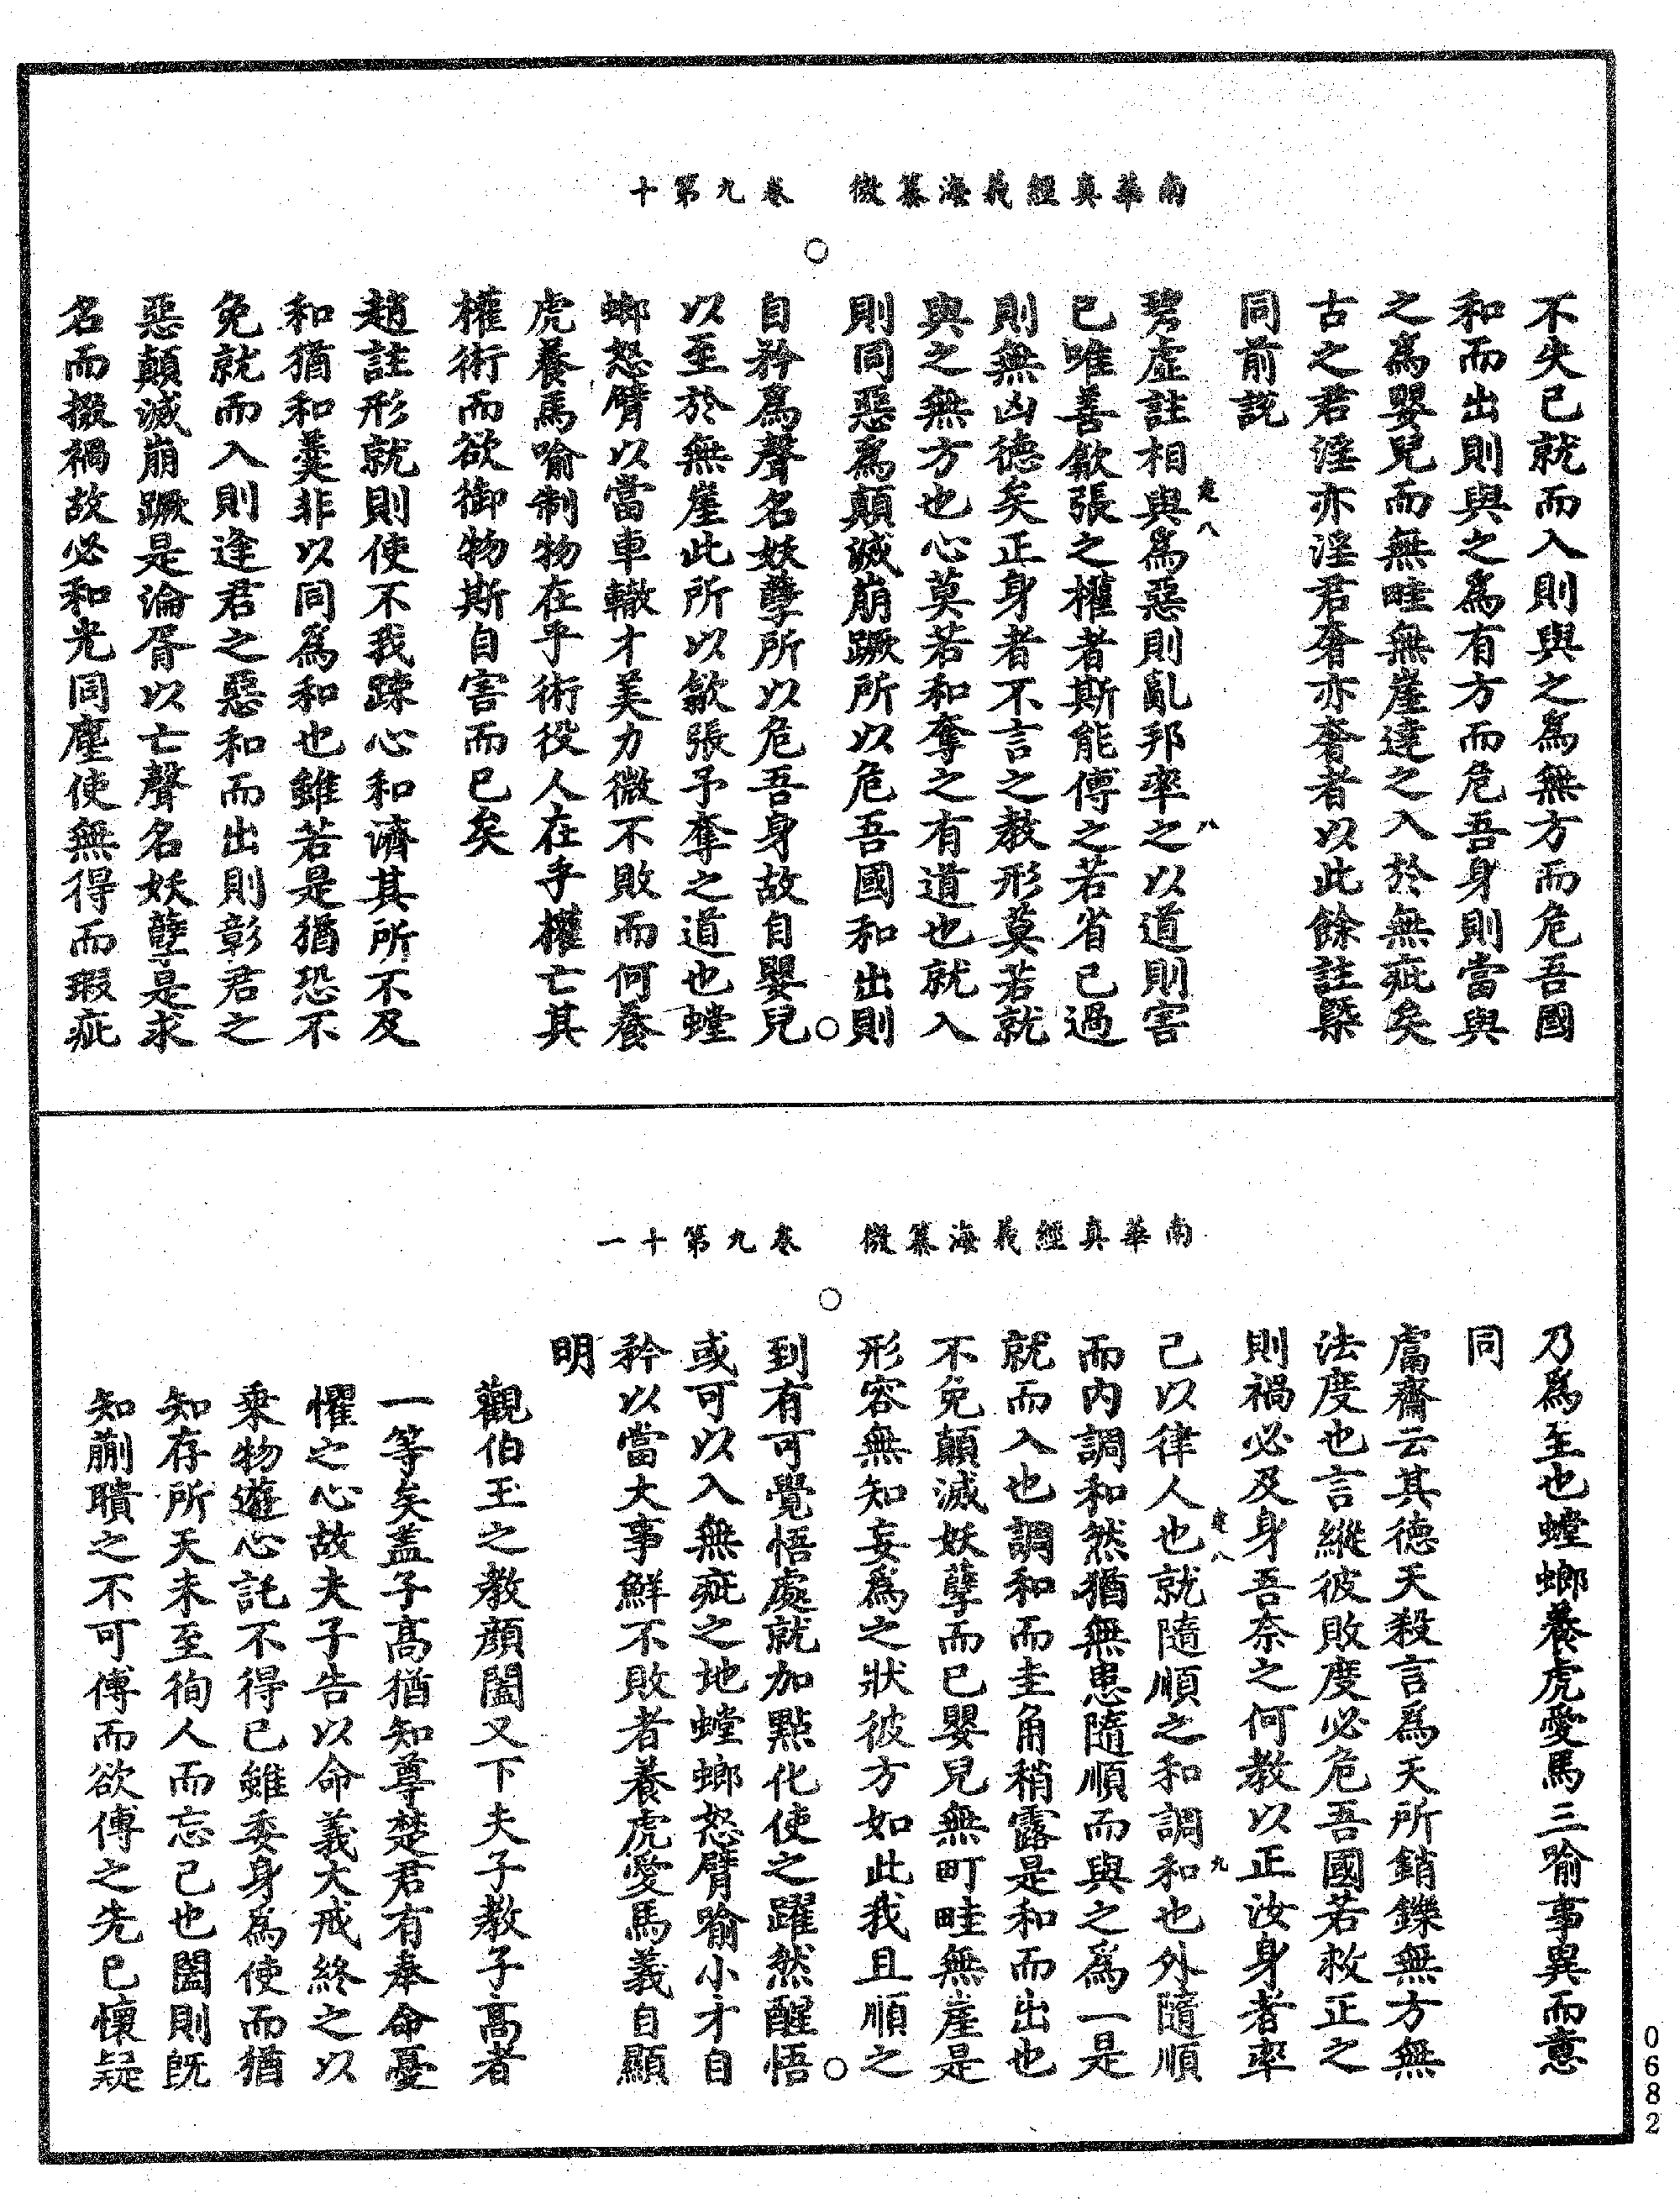 南華真經義海纂微　卷九第十
不失已就而入則與之為無方而危吾國
和而出則與之為有方而危吾身則當與
之為嬰兒而無畦無崖達之入於無疵矣
古之君淫亦淫君奢亦奢者以此餘註槩
同前說
碧虛註相與為惡則亂邦率之以道則害
已唯善歙張之權者斯能傅之若省已過
則無凶德矣正身者不言之教形莫若就
與之無方也心莫若和奪之有道也就入
則同惡為顛滅崩蹶所以危吾國和出則
自矜為聲名妖孽所以危吾身故自嬰兒
以至於無崖此所以歙張予奪之道也螳
螂怒臂以當車轍才美力微不敗而何養
虎養馬喻制物在乎術役人在乎權亡其
權術而欲御物斯自害而已矣
趙註形就則使不我踈心和濟其所不及
和猶和羹非以同為和也雖若是猶恐不
免就而入則逢君之惡和而出則彰君之
惡顛滅崩蹶是淪胥以亡聲名妖孽是求
名而掇禍故必和光同塵使無得而瑕疵
南華真經義海纂微　卷九第十一
乃為至也螳螂養虎愛馬三喻事異而意
同
鬳齋云其德天殺言為天所銷鑠無方無
法度也言縱彼敗度必危吾國若救正之
則禍必及身吾奈之何教以正汝身者率
己以律人也就隨順之和調和也外隨順
而内調和然猶無患隨順而與之為一是
就而入也調和而圭角稍露是和而出也
不免顛滅妖孽而已嬰兒無町畦無崖是
形容無知妄為之狀彼方如此我且順之
到有可覺悟處就加點化使之躍然醒悟
或可以入無疵之地螳螂怒臂喻小才自
矜以當大事鮮不敗者養虎愛馬義自顯
明
觀伯玉之教顏闔又下夫子教子高者
一等矣蓋子高猶知尊楚君有奉命憂
懼之心故夫子告以命義大戒終之以
乗物遊心託不得已雖委身為使而猶
知存所天未至徇人而忘己也闔則既
知蒯聵之不可傅而欲傅之先已懷疑
0682